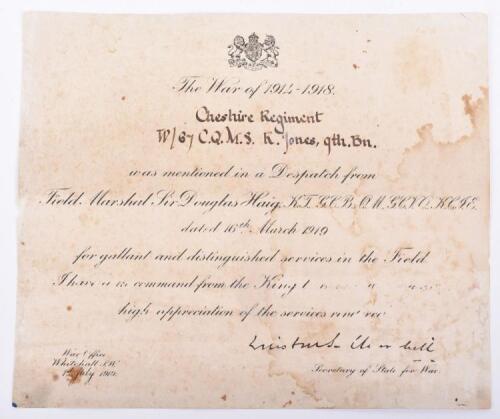 The War of 1914-1918.
Cheshire Regiment
W/67 C.Q.M.S. K. Jones, 9th. Bn.
was mentioned in a Despatch from
Field Marshal Sir Douglas Haig, K.T. G.C.B. O.M. G.C.V.O. K.C.I.E.
dated 16th March 1919
for gallant and distinguished services in the Field.
I have command from the King
high appreciation of the services
War Office
Whitehall. S.W.
1st July 1919.
Secretary of State for War.